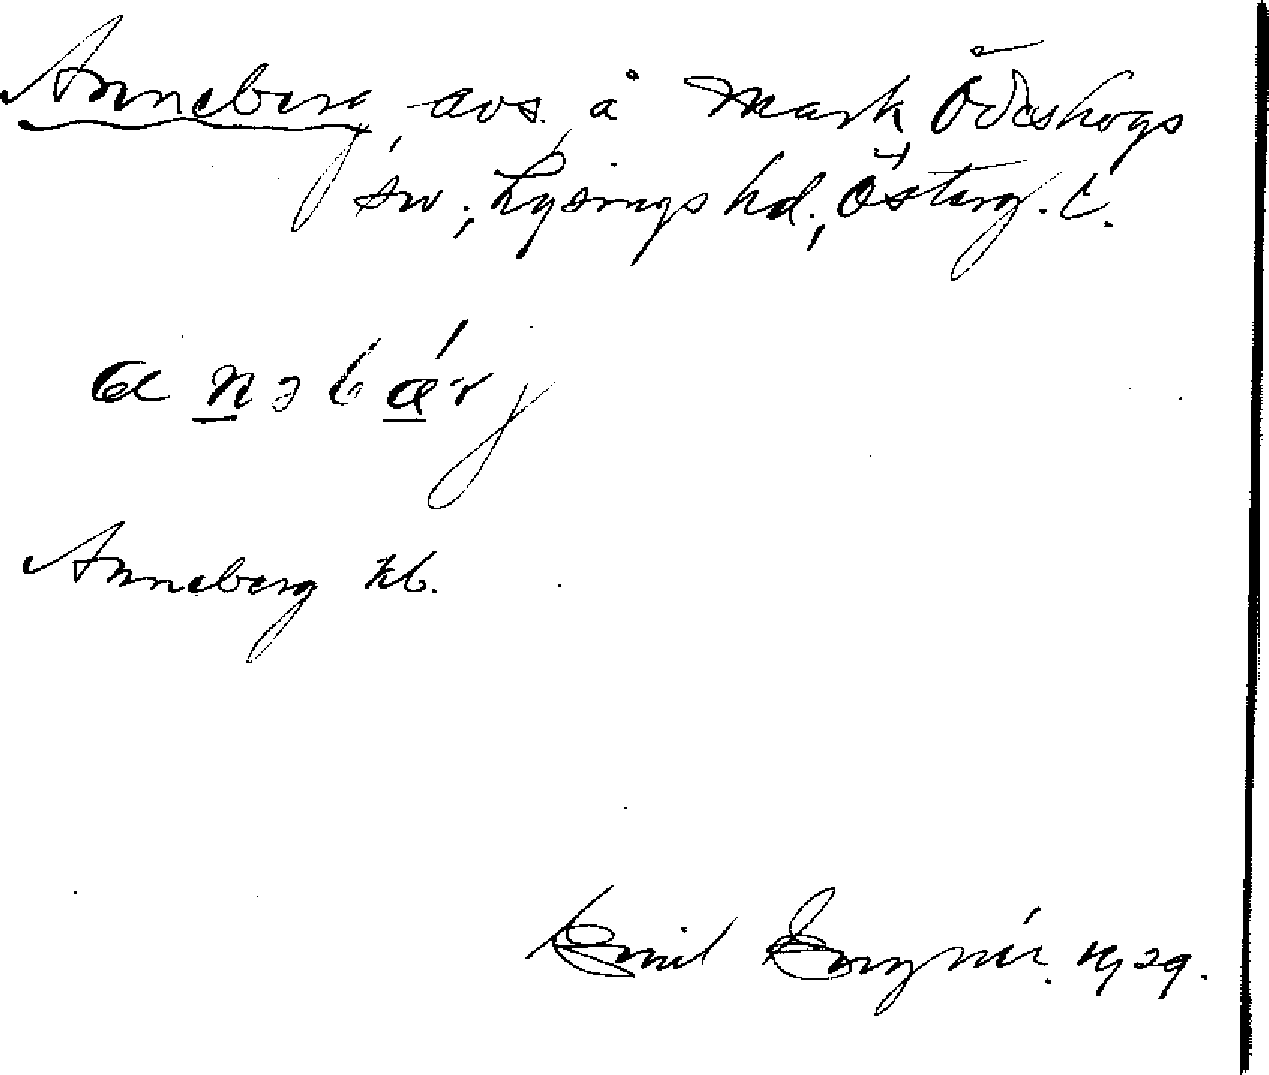 Anneberg, avs. å Mark Ödeshogs
sn., Lysings hd., Österg. L.
anəbǽrj
Anneberg kb.
Emil Engnér. 1929.